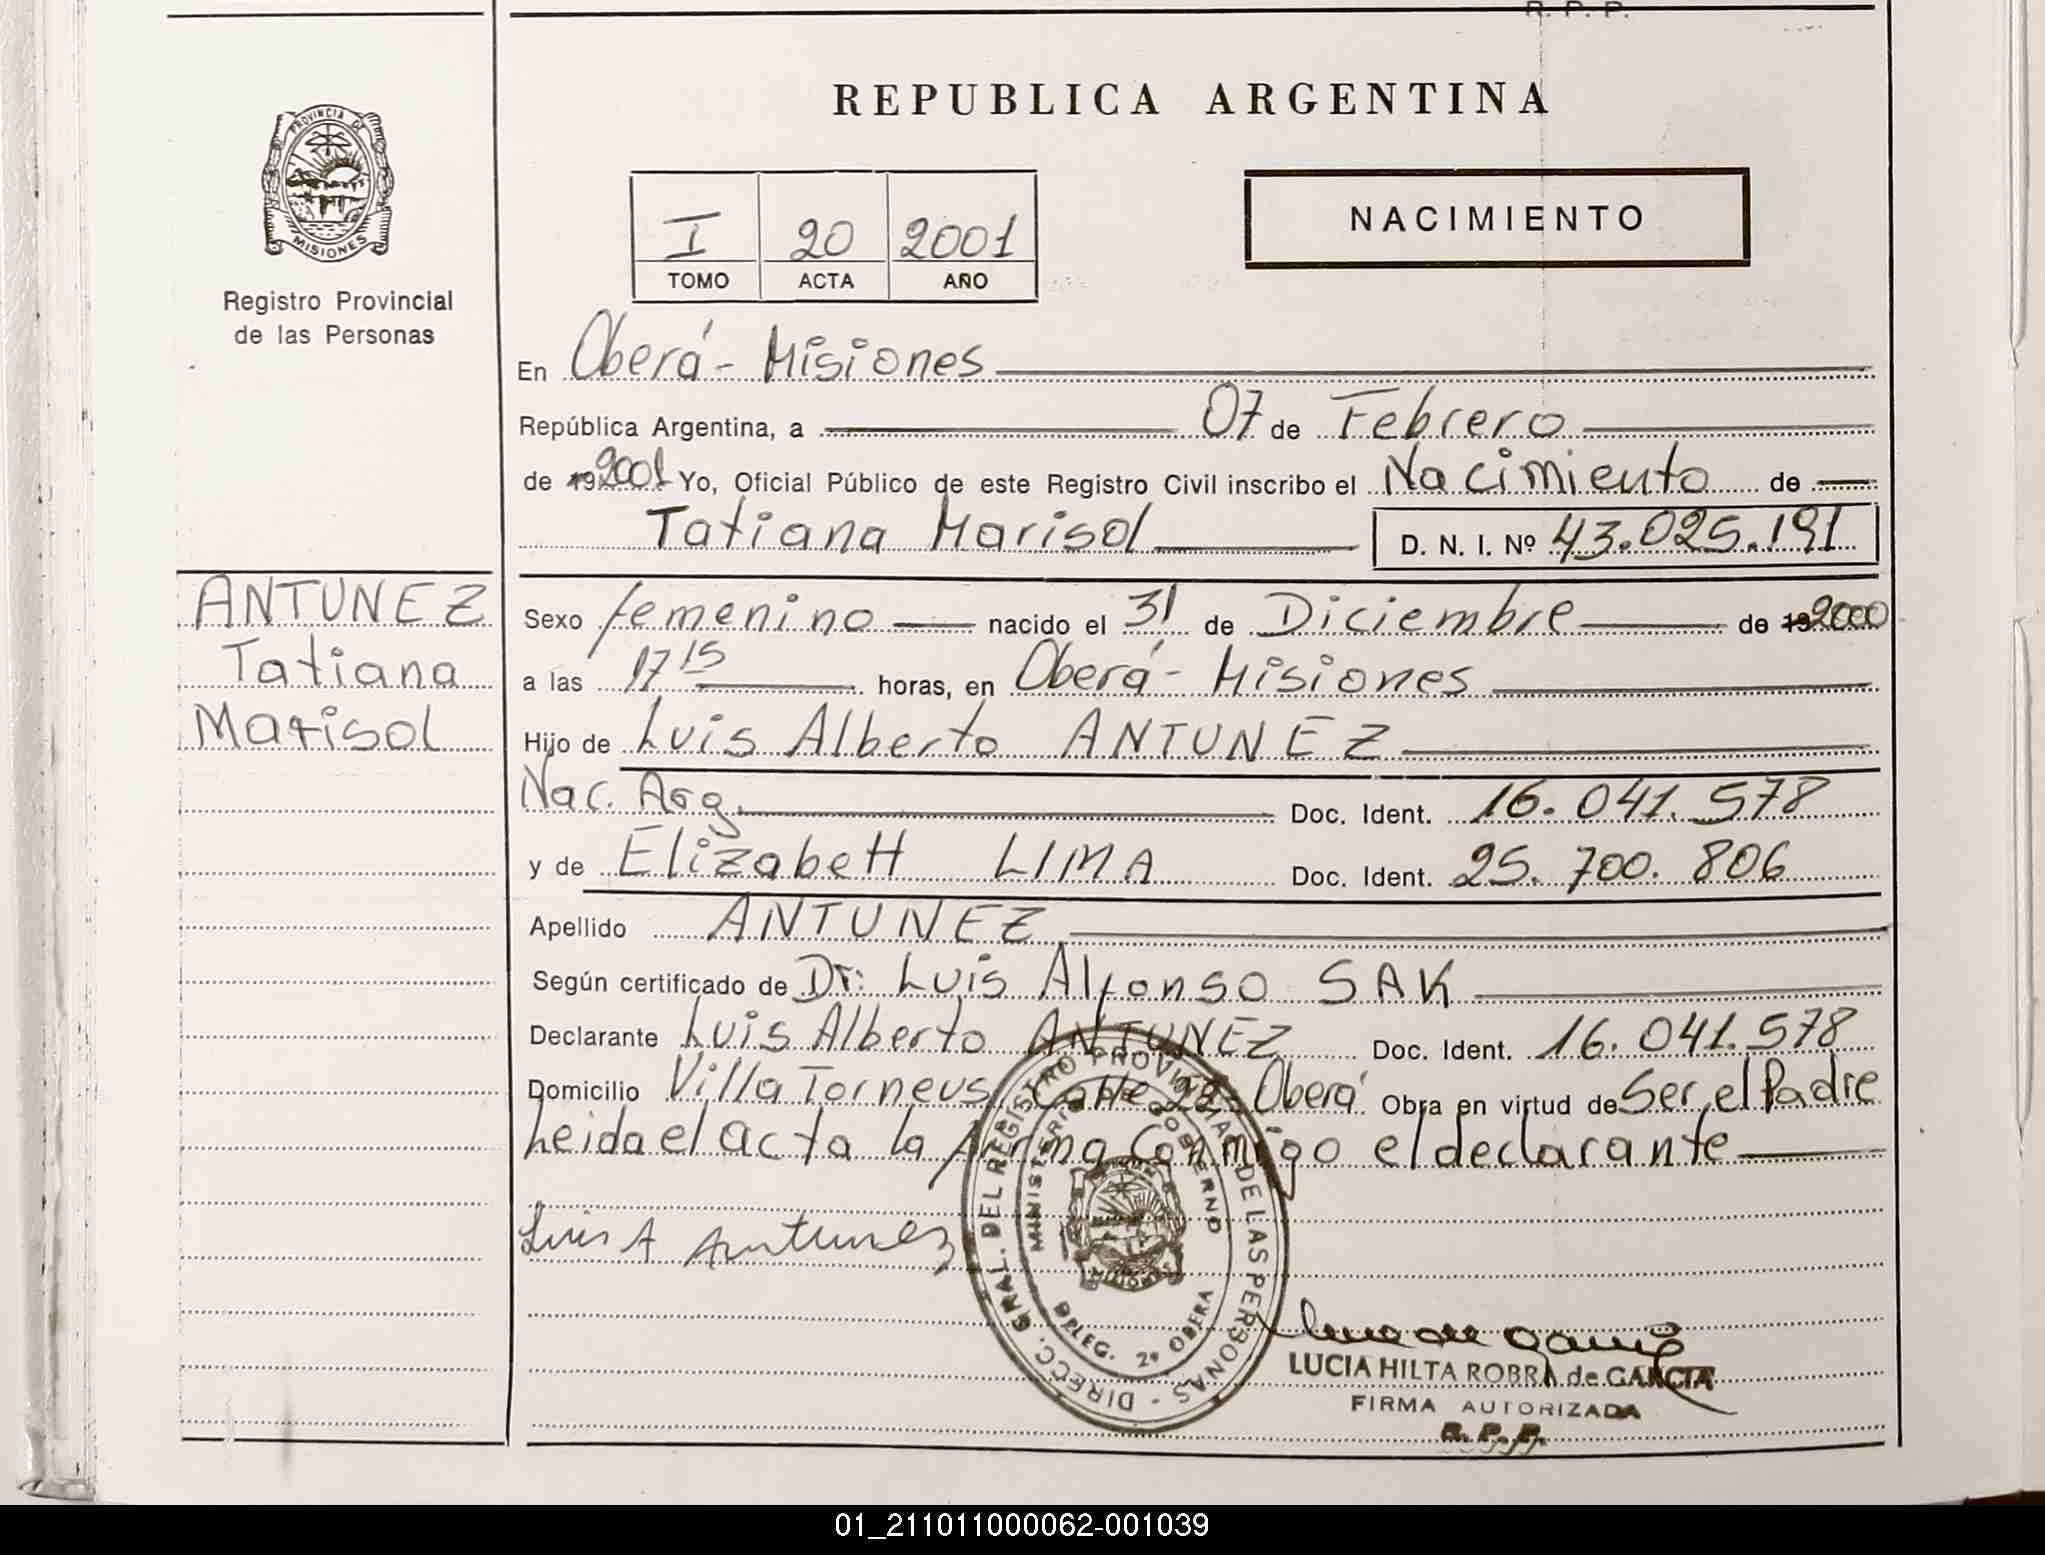 R. P. P.
REPUBLICA ARGENTINA
PROVINCIA DE
MISIONES
Registro Provincial
de las Personas
I 20 2001
TOMO ACTA AÑO
NACIMIENTO
En Oberá - Misiones
República Argentina, a 07 de Febrero
de 19 2001 Yo, Oficial Público de este Registro Civil inscribo el Nacimiento de
Tatiana Marisol D. N. I. Nº 43.025.191
ANTUNEZ
Tatiana
Marisol
Sexo femenino nacido el 31 de Diciembre de 19 2000
a las 17 15 horas, en Oberá - Misiones
Hijo de Luis Alberto ANTUNEZ
Nac. Arg. Doc. Ident. 16.041.578
y de Elizabett LIMA Doc. Ident. 25.700.806
Apellido ANTUNEZ
Según certificado de Dr: Luis Alfonso SAK
Declarante Luis Alberto ANTUNEZ Doc. Ident. 16.041.578
Domicilio Villa Torneus Calle Oberá Obra en virtud de Ser el Padre
Leida el acta la firma Conmigo el declarante
Luis A Antunez
DIRECC. GRAL. DEL REGISTRO PROVINCIAL DE LAS PERSONAS -
MINISTERIO DE GOBIERNO
MISIONES
DELEG. 2ª OBERA
LUCIA HILTA ROBRA de GARCIA
FIRMA AUTORIZADA
R. P. P.
01_211011000062-001039